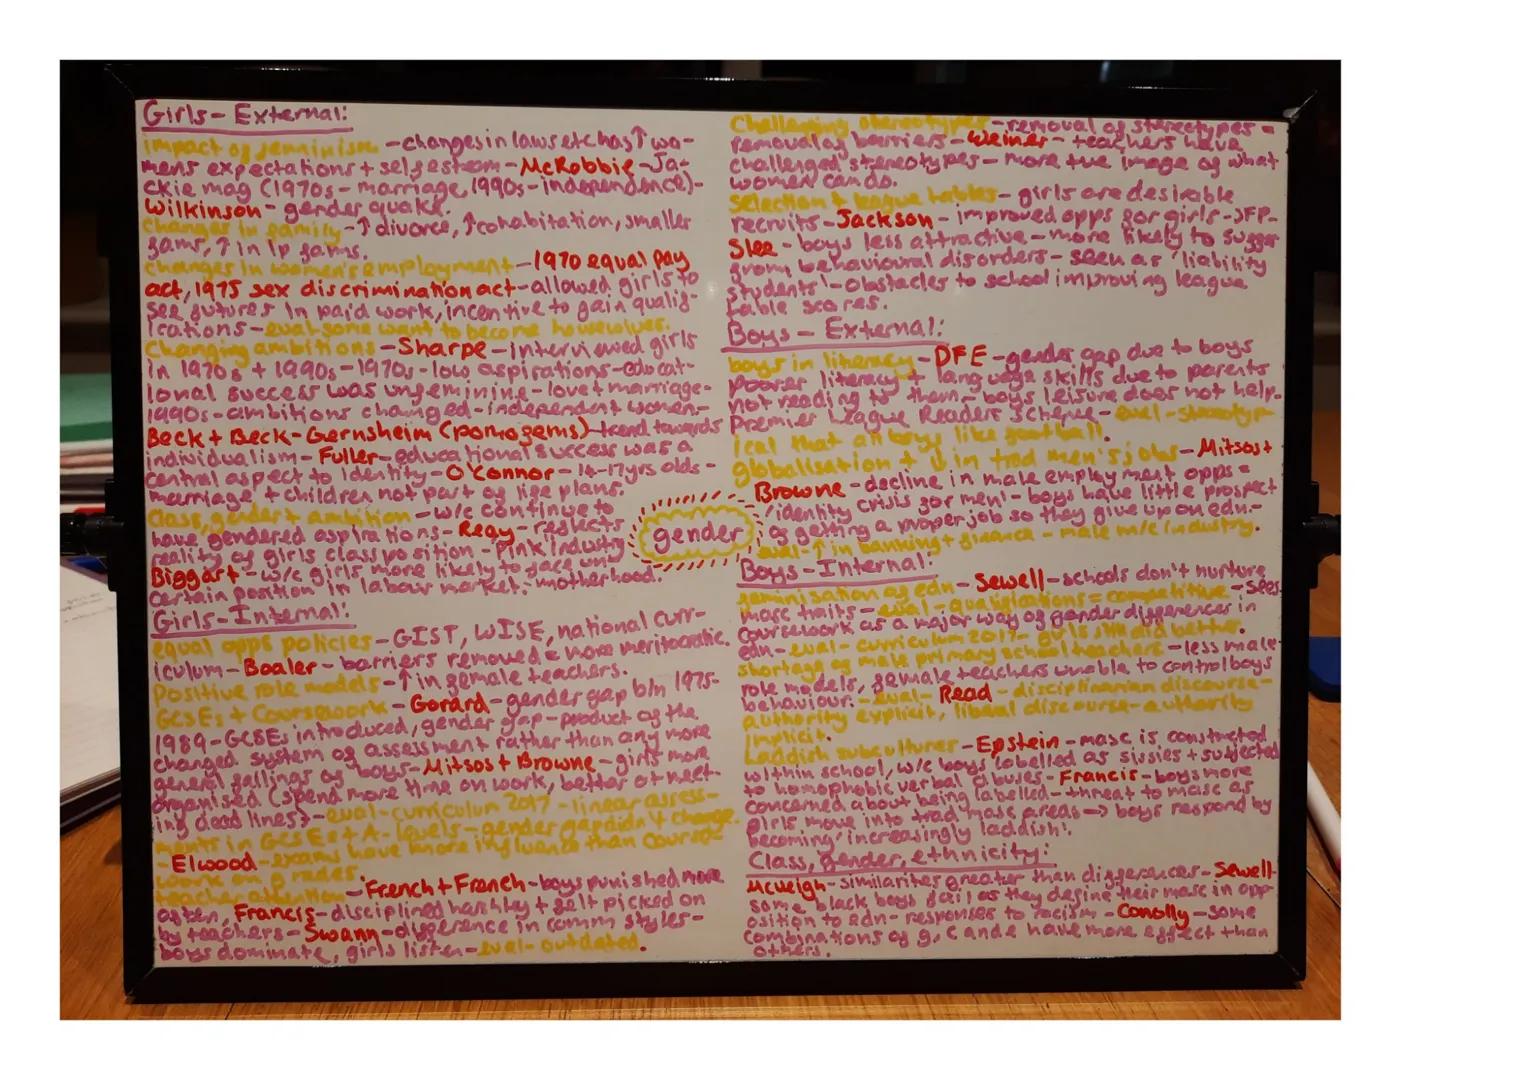 Girls - External:
impact of feminism - changes in laws etc has ↑ wo-
mens expectations + self esteem - McRobbie - Ja-
ckie mag (1970s - marriage, 1990s - independence) -
Wilkinson - gender quake.
Changes in family - ↑ divorce, ↑ cohabitation, smaller
fams, ↑ in lp fams.
changes in women's employment - 1970 equal pay
act, 1975 sex discrimination act - allowed girls to
see futures in paid work, incentive to gain qualif-
ications - eval - some want to become housewives.
Changing ambitions - Sharpe - interviewed girls
in 1970s + 1990s - 1970s - low aspirations - educat-
ional success was unfeminine - love + marriage -
1990s - ambitions changed - independent women -
Beck + Beck-Gernsheim (pomogems) - trend towards
individualism - Fuller - educational success was a
central aspect to identity - O'Connor - 14-17yrs olds -
marriage + children not part of life plans.
Class, gender + ambition - w/c continue to
have gendered aspirations - Reay - reflects
reality of girls class position - pink industry
Biggart - w/c girls more likely to face un-
certain position in labour market. motherhood.
Girls - Internal:
equal opps policies - GIST, WISE, national curr-
iculum - Boaler - barriers removed = more meritocratic.
Positive role models - ↑ in female teachers.
GCSEs + Coursework - Gorard - gender gap b/n 1975-
1989 - GCSEs introduced, gender gap - product of the
changed system of assessment rather than any more
general failings of boys - Mitsos + Browne - girls more
organised (spend more time on work, better at meet-
ing deadlines) - eval - curriculum 2017 - linear assess-
ments in GCSEs + A-levels - gender gap didn't change.
- Elwood - exams have more influence than course-
work on grades
teacher attention - French + French - boys punished more
often, Francis - disciplined harshly + felt picked on
by teachers - Swann - difference in comm styles -
boys dominate, girls listen - eval - outdated.
gender
Challenging stereotypes - removal of stereotypes =
removal of barriers - Weiner - teachers have
challenged stereotypes - more +ve image of what
women can do.
Selection + league tables - girls are desirable
recruits - Jackson - improved opps for girls - SFP -
Slee - boys less attractive - more likely to suffer
from behavioural disorders - seen as 'liability
students' - obstacles to school improving league
table scores.
Boys - External:
boys in literacy - DFE - gender gap due to boys
poorer literacy + language skills due to parents
not reading to them - boys leisure does not help -
Premier League Readers Scheme - eval - stereotyp-
ical that all boys like football.
globalisation + ↓ in trad men's jobs - Mitsos +
Browne - decline in male employment opps =
'identity crisis for men' - boys have little prospect
of getting a proper job so they give up on edn. -
eval - ↑ in banking + finance - male m/c industry.
Boys - Internal:
feminisation of edn - Sewell - schools don't nurture
masc traits - eval - qualifications = competitive - sees
coursework as a major way of gender differences in
edn - eval - curriculum 2017 - girls still did better.
shortage of male primary school teachers - less male
role models, female teachers unable to control boys
behaviour. - eval - Read - disciplinarian discourse -
authority explicit, liberal discourse - authority
implicit.
Laddish subcultures - Epstein - masc is constructed
within school, w/c boys labelled as sissies + subjected
to homophobic verbal abuses - Francis - boys more
concerned about being labelled - threat to masc as
girls move into trad masc areas → boys respond by
becoming 'increasingly laddish'.
Class, gender, ethnicity:
McVeigh - similarites greater than differences - Sewell -
some black boys fail as they define their masc in opp-
osition to edn - responses to racism - Conolly - some
combinations of g, c and e have more effect than
others.